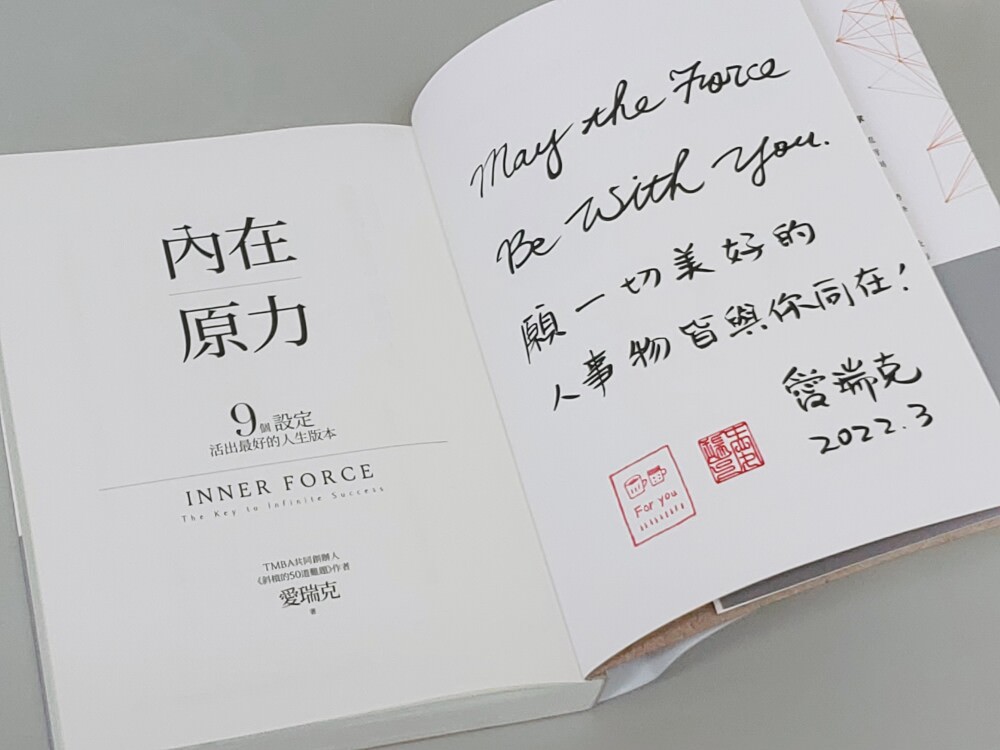 內在
原力
9個設定
活出最好的人生版本
INNER FORCE
The Key to Infinite Success
TMBA共同創辦人
《斜槓的50道難題》作者
愛瑞克
著
May the Force
Be With You.
願一切美好的
人事物皆與你同在!
愛瑞克
2022.3
For you